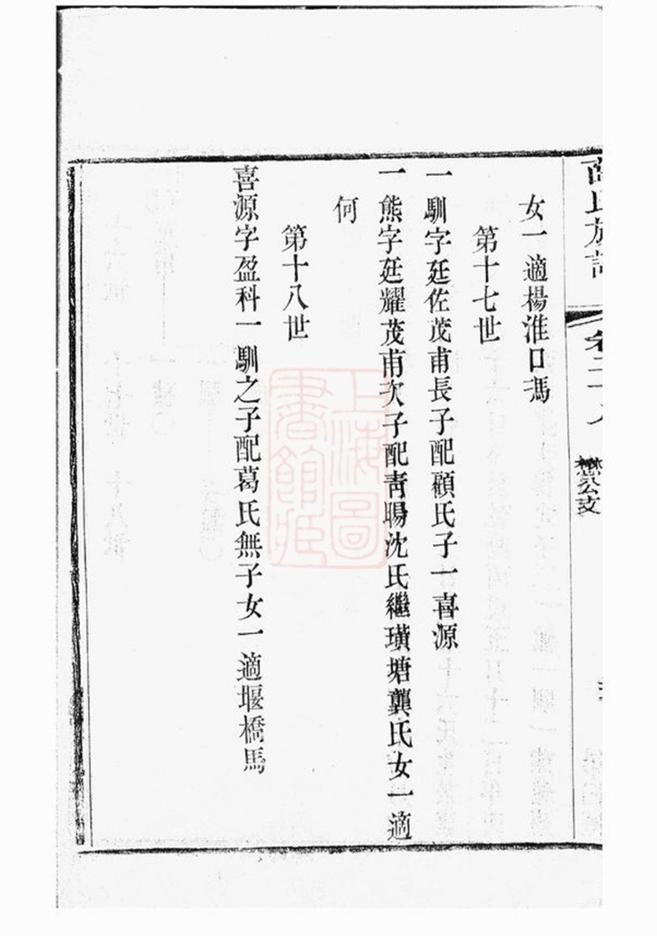 女一適楊淮口馮
第十七世
一馴字廷佐茂甫長子配顧氏子一喜源
一熊字廷耀茂甫次子配青暘沈氏繼璜塘龔氏女一適
何
第十八世
喜源字盈科一馴之子配葛氏無子女一適堰橋馬
上海圖書館藏